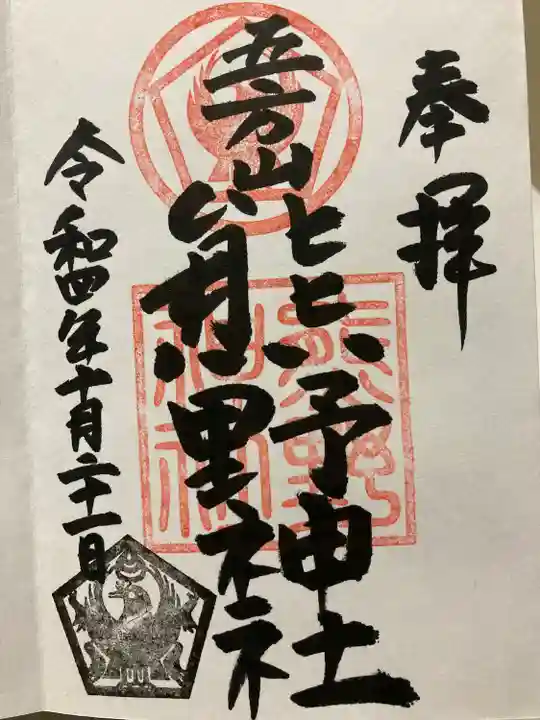 奉拝
五方山
熊野神社
令和四年十月二十一日
熊野
神社